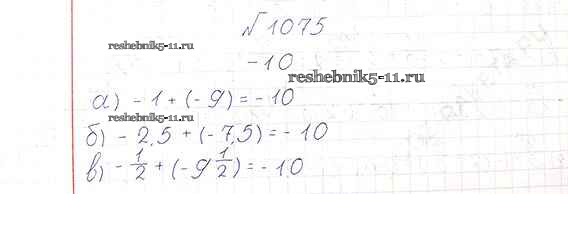 № 1075
reshebnik5-11.ru
-10
reshebnik5-11.ru
а) - 1 + (- 9) = - 10
reshebnik5-11.ru
б) - 2,5 + (- 7,5) = - 10
в) - 1/2 + (- 9 1/2) = - 10